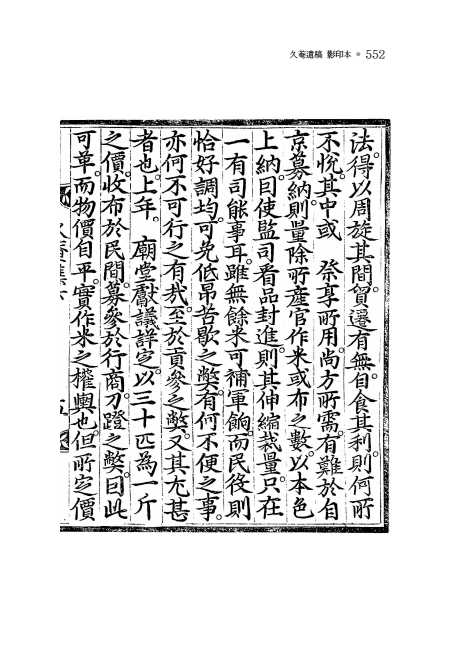 久菴遺稿 影印本 ● 552
法。得以周旋其間。貿遷有無。自食其利。則何所
不悅。其中或 祭享所用。尙方所需。有難於自
京募納。則量除所產官作米或布之數。以本色
上納。因使監司看品封進。則其伸縮裁量。只在
一有司能事耳。雖無餘米可補軍餉。而民役則
恰好調均。可免低昂苦歇之獘。有何不便之事。
亦何不可行之有哉。至於貢參之獘。又其尤甚
者也。上年。 廟堂獻議詳定。以三十匹為一斤
之價。收布於民間。募參於行商。刀蹬之獘。因此
可革。而物價自平。實作米之權輿也。但所定價